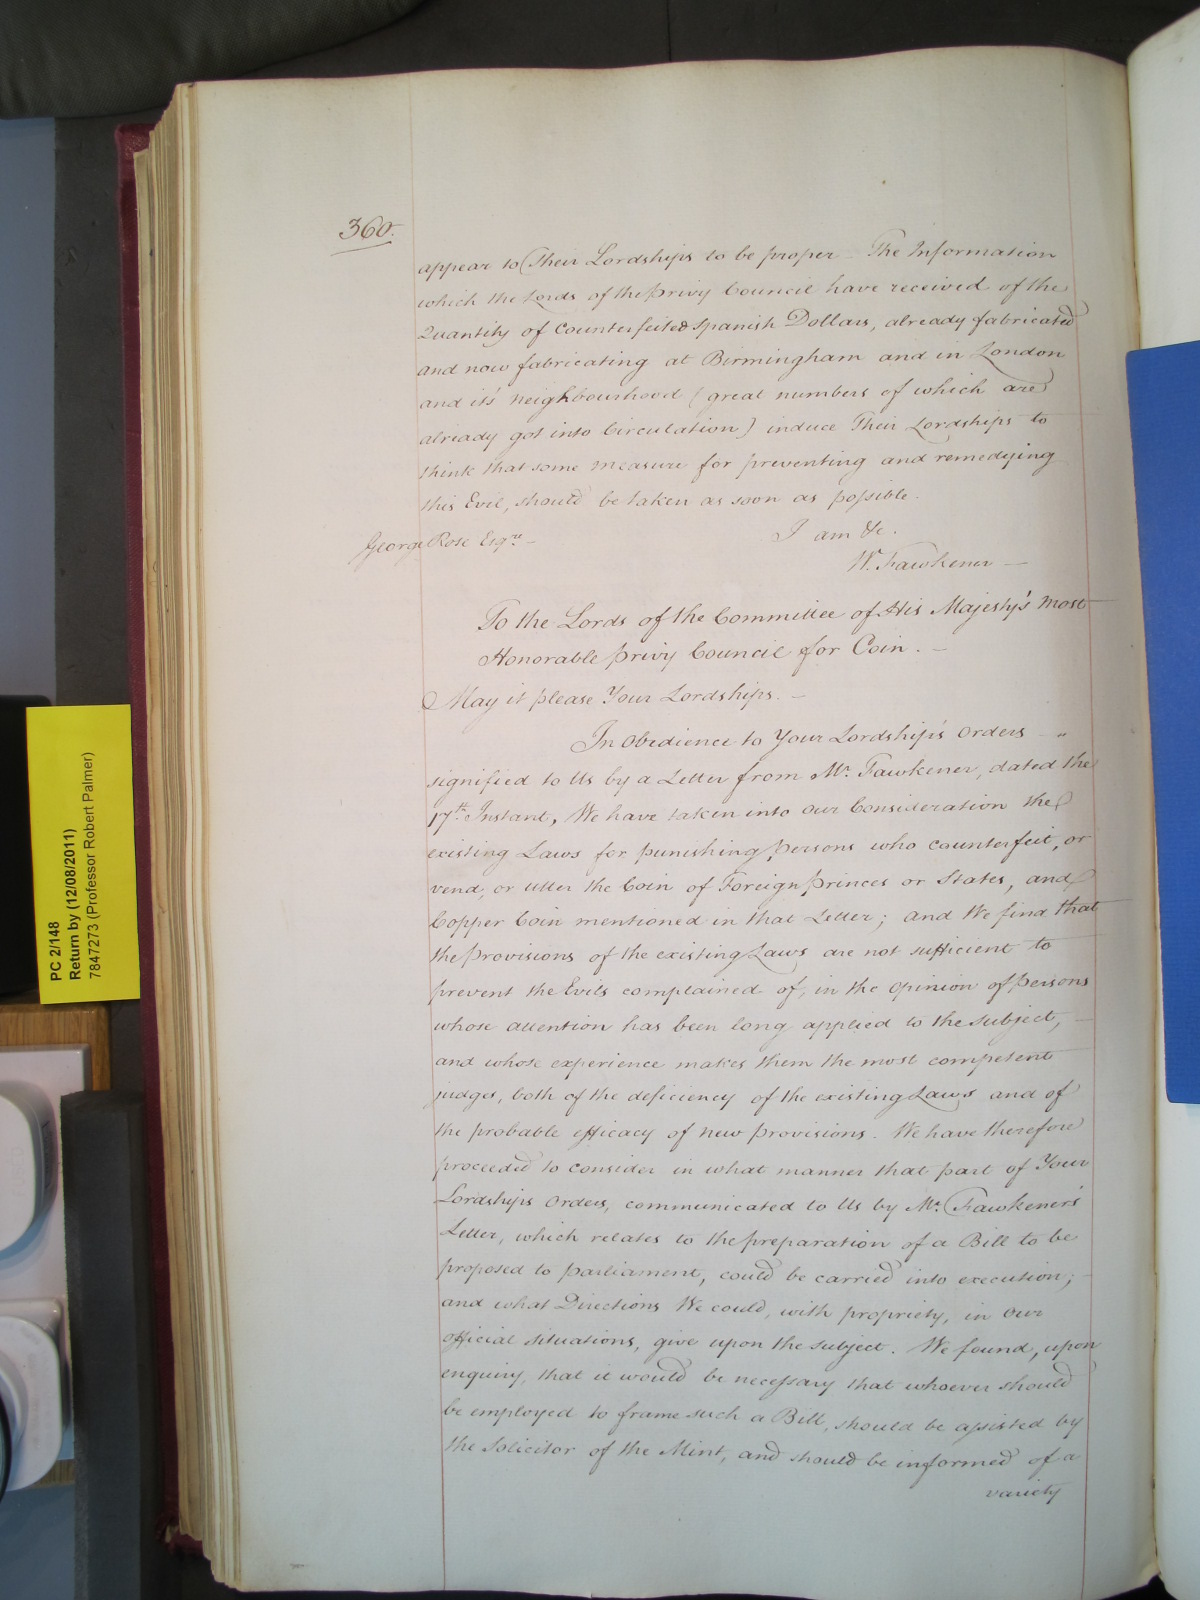 360.
appear to Their Lordships to be proper The Information
which the Lords of the Privy Council have received of the
Quantity of Counterfeited Spanish Dollars, already fabricated
and now fabricating at Birmingham and in London
and it's neighbourhood (great numbers of which are
already got into Circulation) induce Their Lordships to
think that some measure for preventing and remedying
this Evil, should be taken as soon as possible.
I am &c.
George Rose Esqre. -
W. Fawkener —
To the Lords of the Committee of His Majesty's Most
Honorable Privy Council for Coin. -
May it please Your Lordships. -
In Obedience to Your Lordship's Orders - "
signified to Us by a Letter from Mr. Fawkener, dated the
17th Instant, We have taken into our Consideration the
existing Laws for punishing Persons who counterfeit, or
vend, or utter the Coin of Foreign Princes or States, and
Copper Coin mentioned in that Letter; and We find that
the Provisions of the existing Laws are not sufficient to
prevent the Evils complained of, in the Opinion of Persons
whose attention has been long applied to the Subject, -
and whose experience makes them the most competent
judges, both of the deficiency of the existing Laws and of
the probable efficacy of new Provisions. We have therefore
proceeded to consider in what manner that part of Your
Lordships Orders, communicated to Us by Mr. Fawkener's
Letter, which relates to the preparation of a Bill to be
proposed to Parliament, could be carried into execution; -
and what Directions We could, with propriety, in our
official situations, give upon the subject. We found, upon
enquiry, that it would be necessary that whoever should
be employed to frame such a Bill, should be assisted by
the Solicitor of the Mint, and should be informed of a
variety
PC 2/148
Return by (12/08/2011)
7847273 (Professor Robert Palmer)